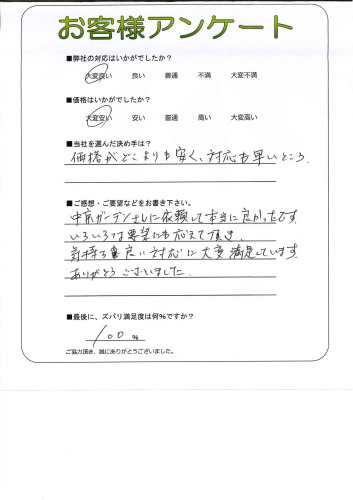 お客様アンケート
■弊社の対応はいかがでしたか?
大変良い 良い 普通 不満 大変不満
■価格はいかがでしたか?
大変安い 安い 普通 高い 大変高い
■当社を選んだ決め手は?
価格がどこよりも安く、対応も早いところ。
■ご感想・ご要望などをお書き下さい。
中京ガーデンさんに依頼して本当に良かったです
いろいろな要望にも応えて頂き、
気持ち良い対応に大変満足しています
ありがとうございました。
■最後に、ズバリ満足度は何%ですか?
100%
ご協力頂き、誠にありがとうございました。